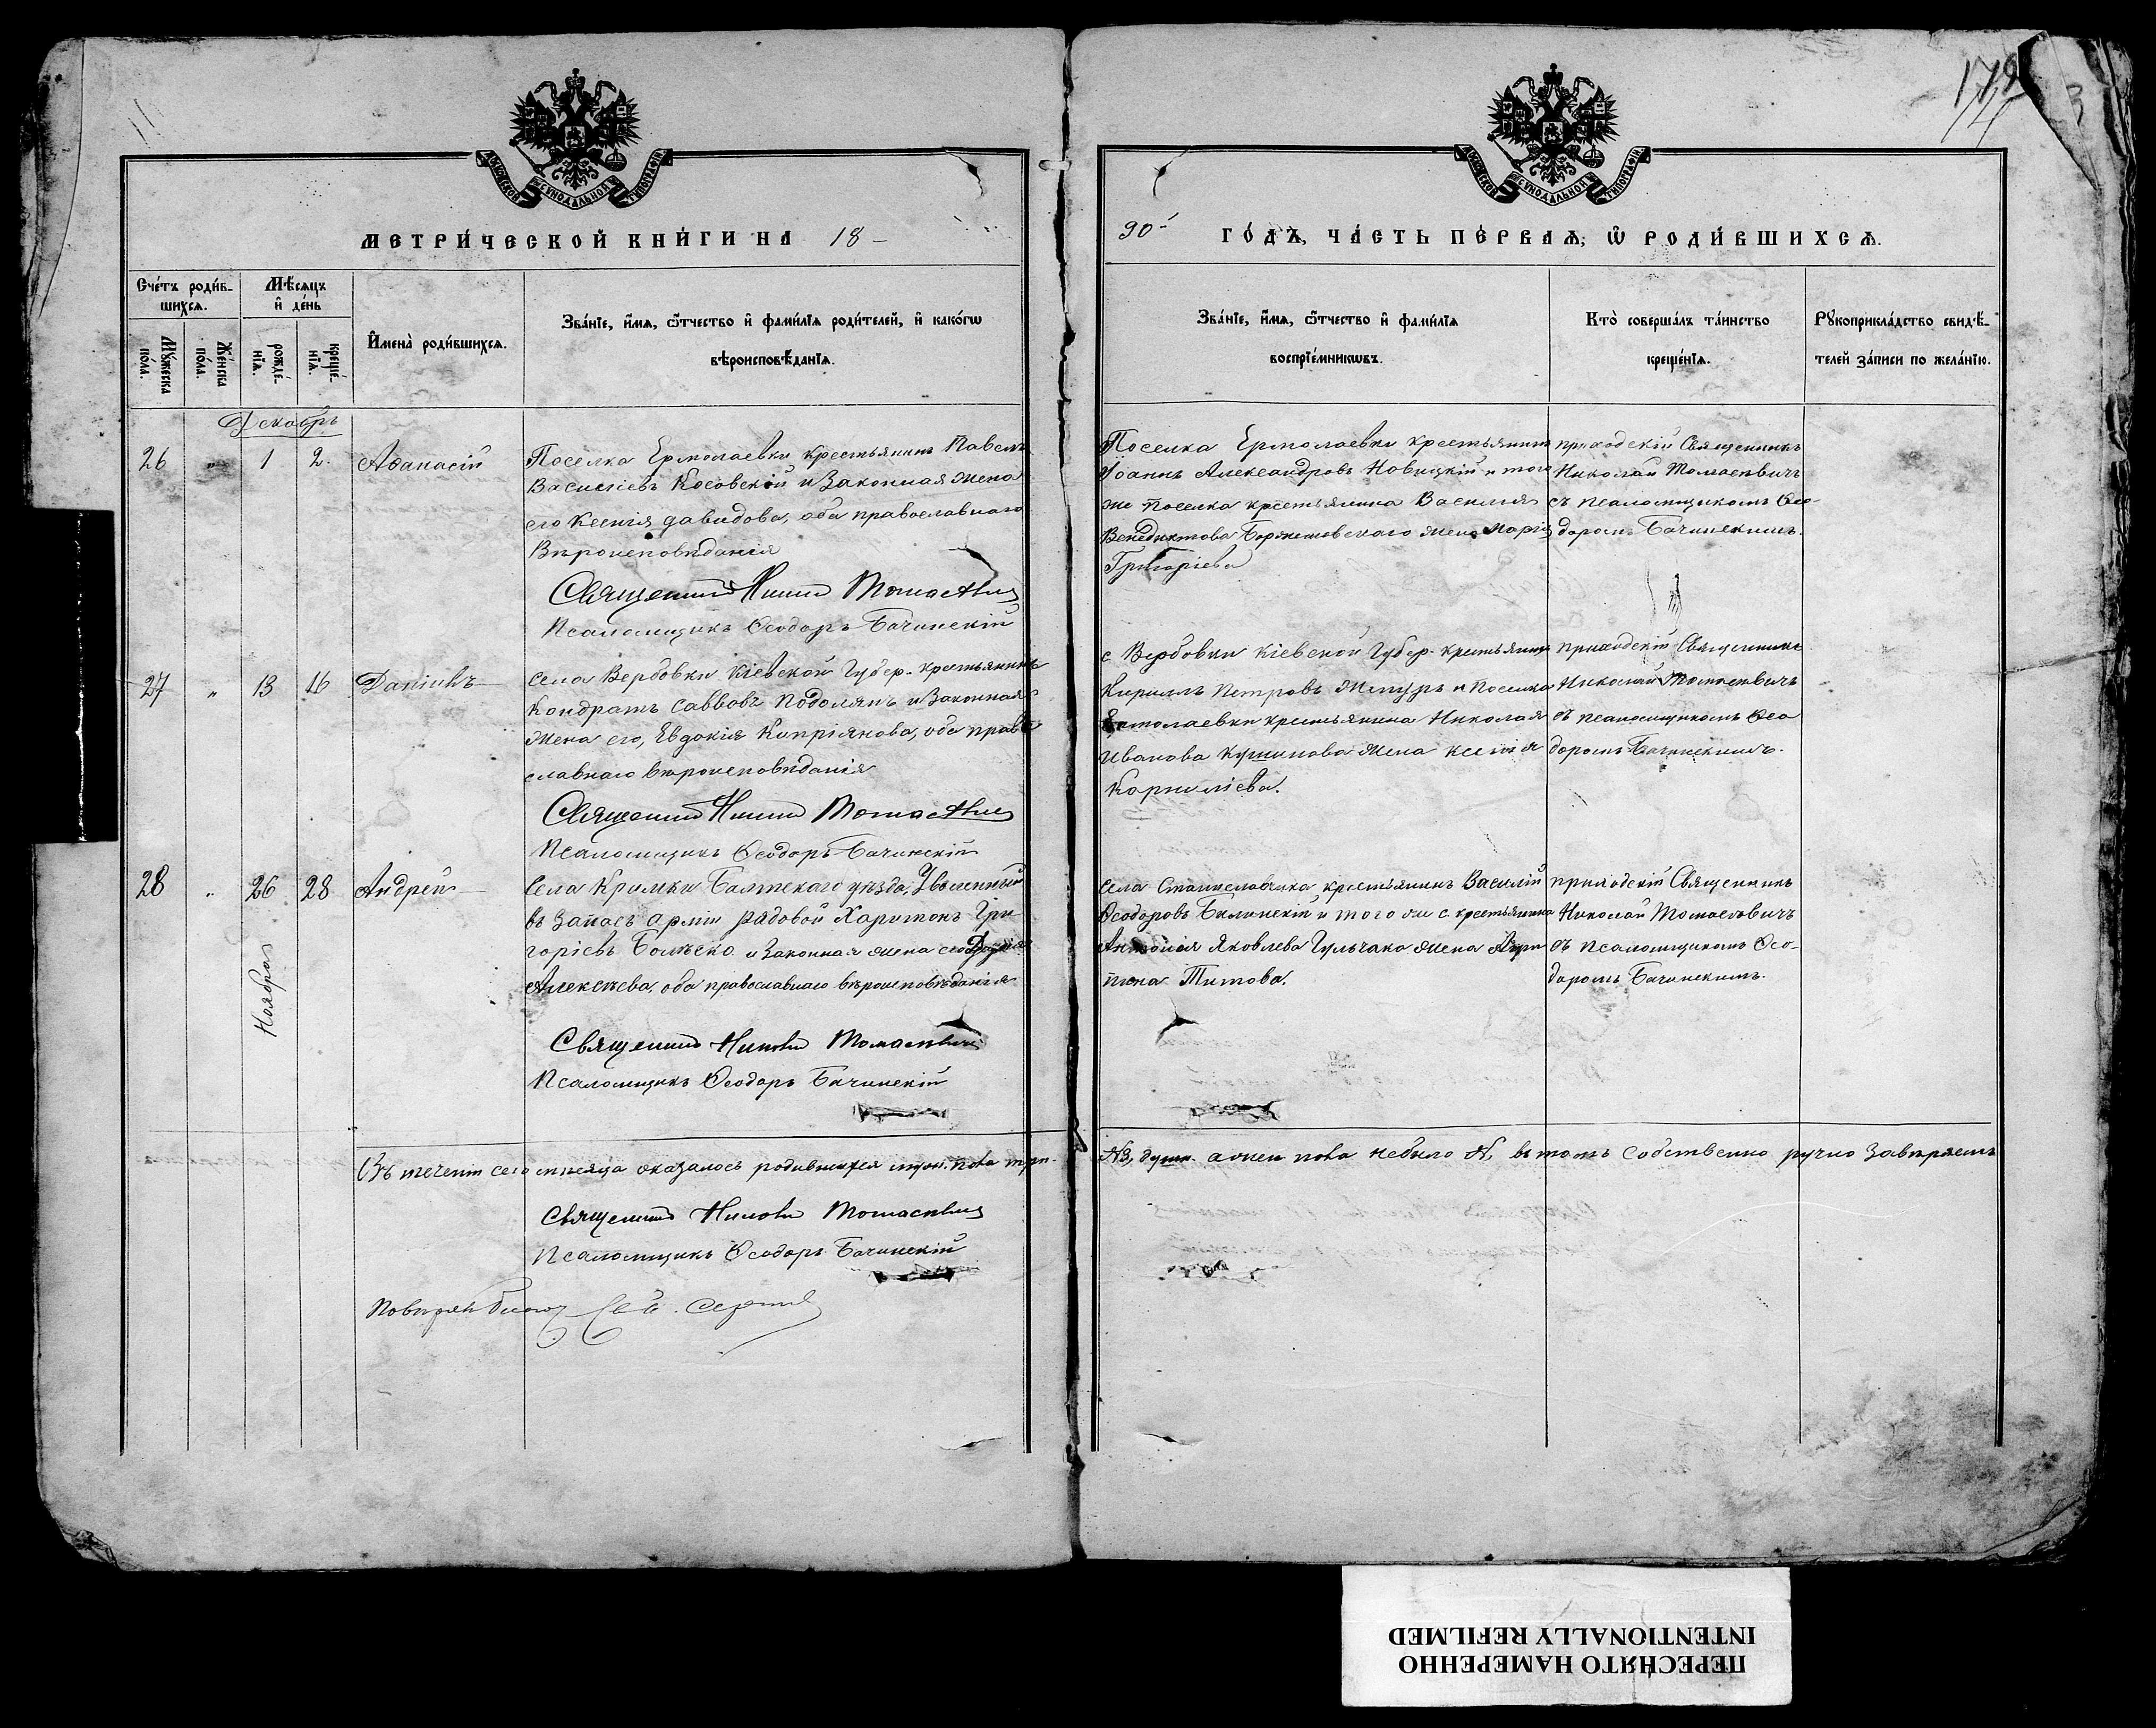 11
179
3
МОСКОВСКОЙ СѴНОДАЛЬНОЙ ТИПОГРАФІИ
МОСКОВСКОЙ СѴНОДАЛЬНОЙ ТИПОГРАФІИ
МЕТРИ́ЧЕСКОЙ КНИ́ГИ НА 18-
90- ГО́ДЪ, ЧА́СТЬ ПЕ́РВАѦ, Ѡ҆ РОДИ́ВШИХСѦ.
Сче́тъ роди́в-
шихсѧ.
Мꙋ́жеска по́ла.
Же́нска по́ла.
Мѣ́сѧцъ
и҆ де́нь
рожде́-нїѧ.
креще́-нїѧ.
И҆мена̀ роди́вшихсѧ.
Зва́нїе, и҆́мѧ, ѻ҆́тчество и҆ фами́лїѧ роди́телей, и҆ како́гѡ
вѣроисповѣ́данїѧ.
Зва́нїе, и҆́мѧ, ѻ҆́тчество и҆ фами́лїѧ
воспрїе́мникѡвъ.
Кто̀ соверша́лъ та́инство
креще́нїѧ.
Рꙋкоприкла́дство свидѣ́-
телей за́писи по жела́нїю.
Декабрь
26 " 1 2. Аѳанасій
Поселка Ермолаевки крестьянинъ Павелъ
Василіевъ Косовской и Законная жена
его Ксенія Давидова, оба православнаго
Вѣроисповѣданія
Священникъ Николай Томасевичъ
Псаломщикъ Ѳеодоръ Бачинскій
Поселка Ермолаевки крестьянинъ
Іоаннъ Александровъ Новицкій и того
же поселка крестьянина Василія
Венедиктова жена Марія
Григоріева
приходскій Священникъ
Николай Томасевичъ
съ псаломщикомъ Ѳео-
доромъ Бачинскимъ.
27 " 13 16 Даніилъ
Села Вербовки Кіевской Губер. крестьянинъ
Кондратъ Саввовъ Подолянъ и Законная
жена его, Евдокія Кипріянова, оба право
славнаго вѣроисповѣданія
Священникъ Николай Томасевичъ
Псаломщикъ Ѳеодоръ Бачинскій
с. Вербовки Кіевской Губер. крестьянинъ
Кириллъ Петровъ и поселка
Ермолаевки крестьянина Николая
Иванова жена Ксенія
Корниліева.
приходскій Священникъ
Николай Томасевичъ
съ псаломщикомъ Ѳео
доромъ Бачинскимъ.
28 " 26 28 Андрей
Ноября
Села Кримки Балтскаго уѣзда, Уволенный
въ Запасъ Арміи рядовой Харитонъ Гри
горіевъ и Законная жена его
Алексѣева, оба православнаго вѣроисповѣданія
Священникъ Николай Томасевичъ
Псаломщикъ Ѳеодоръ Бачинскій
села Станиславчика крестьянинъ Василій
Ѳеодоровъ Билинскій и того же с. крестьянина
Антонія Яковлева Гульчака жена Агри
пина Титова.
приходскій Священникъ
Николай Томасевичъ
съ псаломщикомъ Ѳео-
доромъ Бачинскимъ.
Въ теченіи сего мѣсяца оказалось родившихся муж. пола три.
№3, душ. а жен. пола небыло №, въ томъ собственно ручно Завѣряемъ
Священникъ Николай Томасевичъ
Псаломщикъ Ѳеодоръ Бачинскій
ПЕРЕСНЯТО НАМЕРЕННО
INTENTIONALLY REFILMED